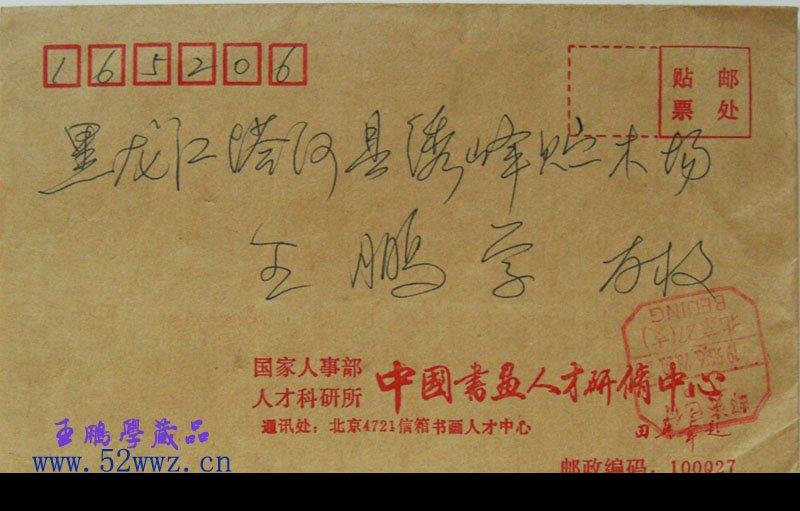 165206
贴 邮
票 处
黑龙江塔河县秀峰贮木场
王鹏学 收
BEIJING
国家人事部
人才科研所 中國書画人才研修中心
通讯处：北京4721信箱书画人才中心
王鵬學藏品
www.52wwz.cn
邮政编码：100027